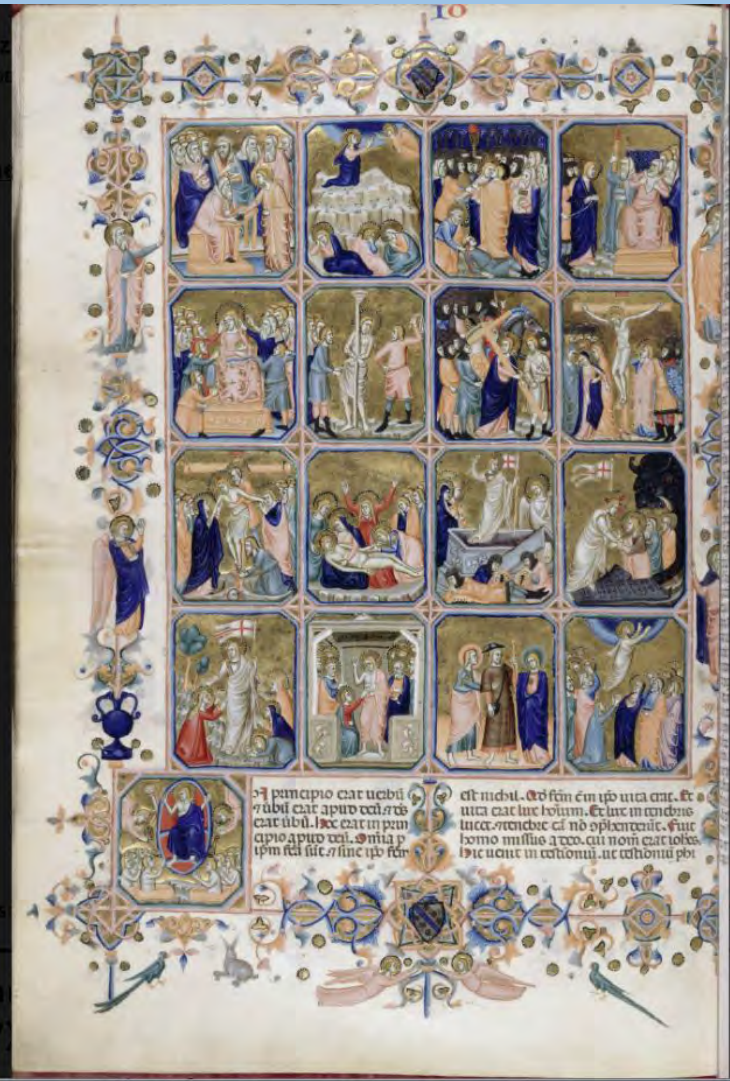 IO
In principio erat uerbū
⁊ ūbū erat apud deū ⁊ ds
erat ūbū. hoc erat in prin
cipio apud deū. Omnia p
ipm fcā sūt ⁊ sine ipo fcm
est nichil. Qđ fcm ē in ipo uita erat. Et
uita erat lux hoīum. Et lux in tenebris
lucet. ⁊ tenebre eā nō ꝯphenderūt. Fuit
homo missus a deo. cui nom̄ erat iohes.
hic uenit in testimoniū. ut testimoniū phi